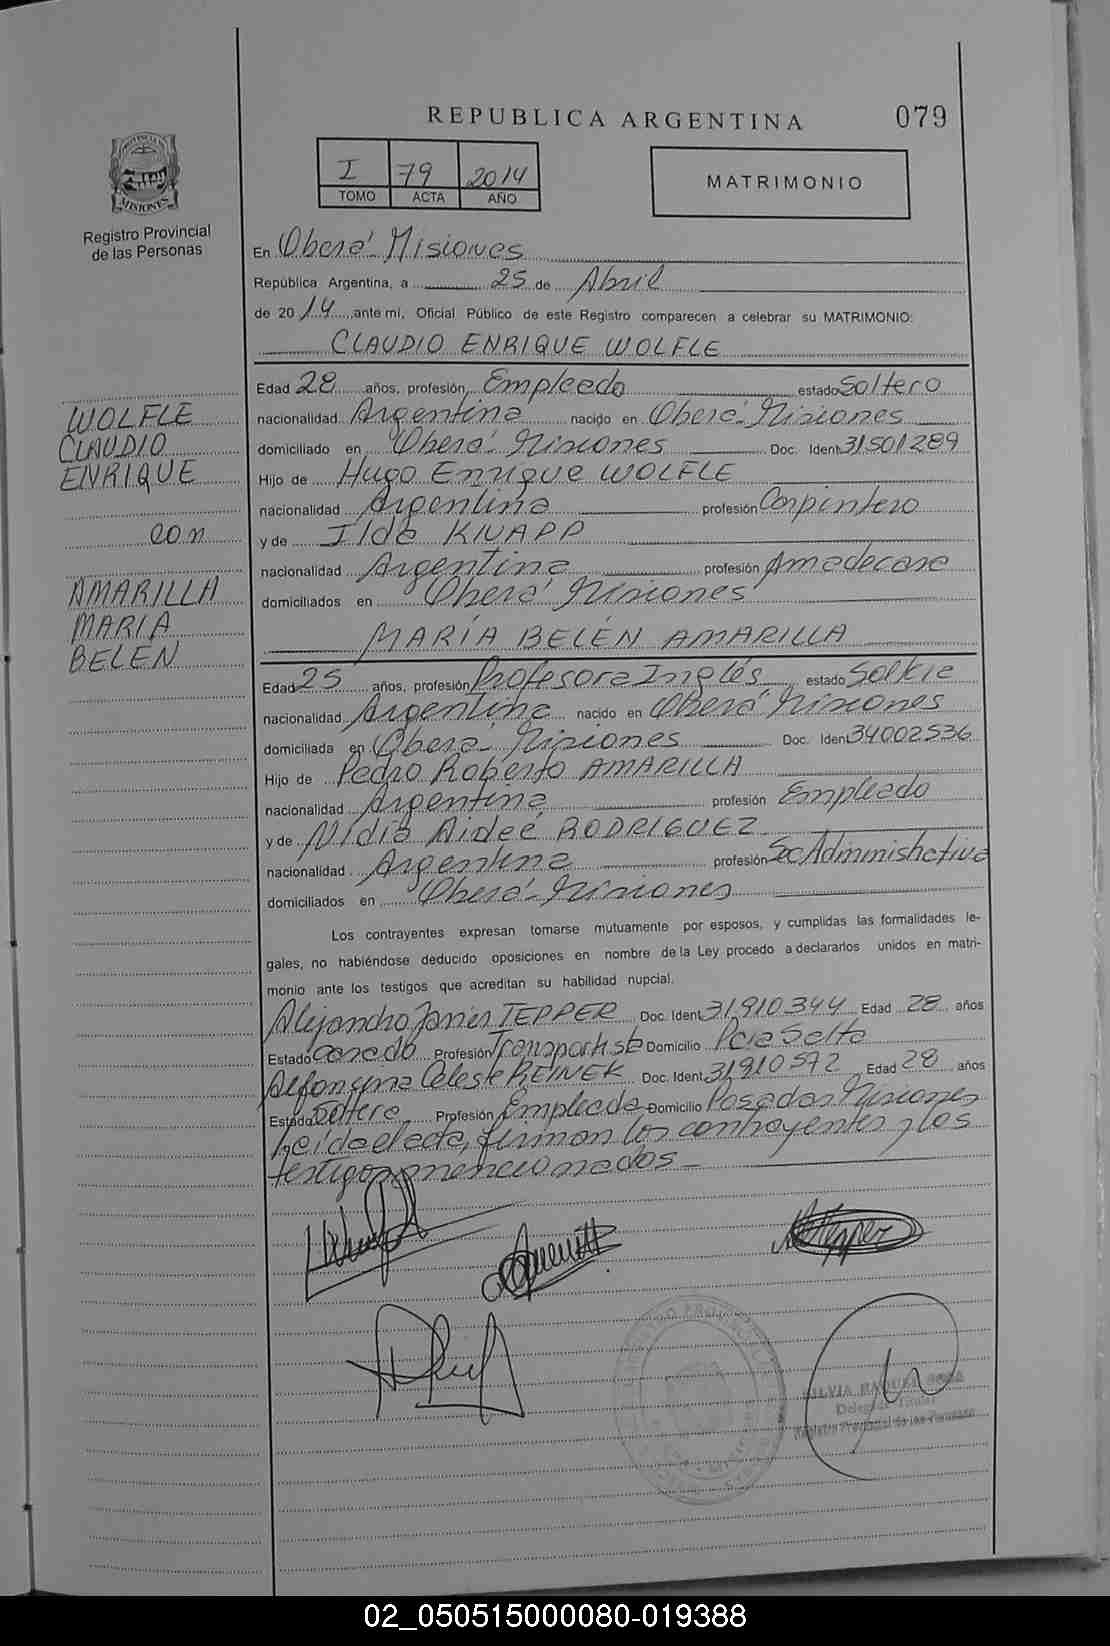 REPUBLICA ARGENTINA
079
I 79 2014
TOMO ACTA AÑO
MATRIMONIO
PROVINCIA DE
MISIONES
Registro Provincial
de las Personas
En Oberá Misiones
República Argentina, a 25 de Abril
de 2014, ante mí, Oficial Público de este Registro comparecen a celebrar su MATRIMONIO:
CLAUDIO ENRIQUE WOLFLE
WOLFLE
CLAUDIO
ENRIQUE
con
AMARILLA
MARIA
BELEN
Edad 28 años, profesión Empleado estado Soltero
nacionalidad Argentina nacido en Oberá-Misiones
domiciliado en Oberá-Misiones Doc. Ident 31501289
Hijo de Hugo Enrique WOLFLE
nacionalidad Argentina profesión Carpintero
y de Ilda KNAPP
nacionalidad Argentina profesión Amadecasa
domiciliados en Oberá Misiones
MARÍA BELÉN AMARILLA
Edad 25 años, profesión Profesora Inglés estado Soltera
nacionalidad Argentina nacido en Oberá Misiones
domiciliada en Oberá-Misiones Doc. Iden 34002536
Hijo de Pedro Roberto AMARILLA
nacionalidad Argentina profesión Empleado
y de Nidia Aideé RODRIGUEZ
nacionalidad Argentina profesión Sec Administrativa
domiciliados en Oberá-Misiones
Los contrayentes expresan tomarse mutuamente por esposos, y cumplidas las formalidades le-
gales, no habiéndose deducido oposiciones en nombre de la Ley procedo a declararlos unidos en matri-
monio ante los testigos que acreditan su habilidad nupcial.
Alejandro Javier TEPPER Doc. Ident 31.910.344 Edad 28 años
Estado Casado Profesión Transportista Domicilio Pcia Salto
Alfonsina Celeste REINEK Doc. Ident 31910572 Edad 28 años
Estado Soltera Profesión Empleada Domicilio Posadas Misiones
Leida el acta, firman los contrayentes y los
testigos mencionados-
Tepper
SILVIA RAQUEL SOSA
Delegada Titular
Registro Provincial de las Personas
02_050515000080-019388